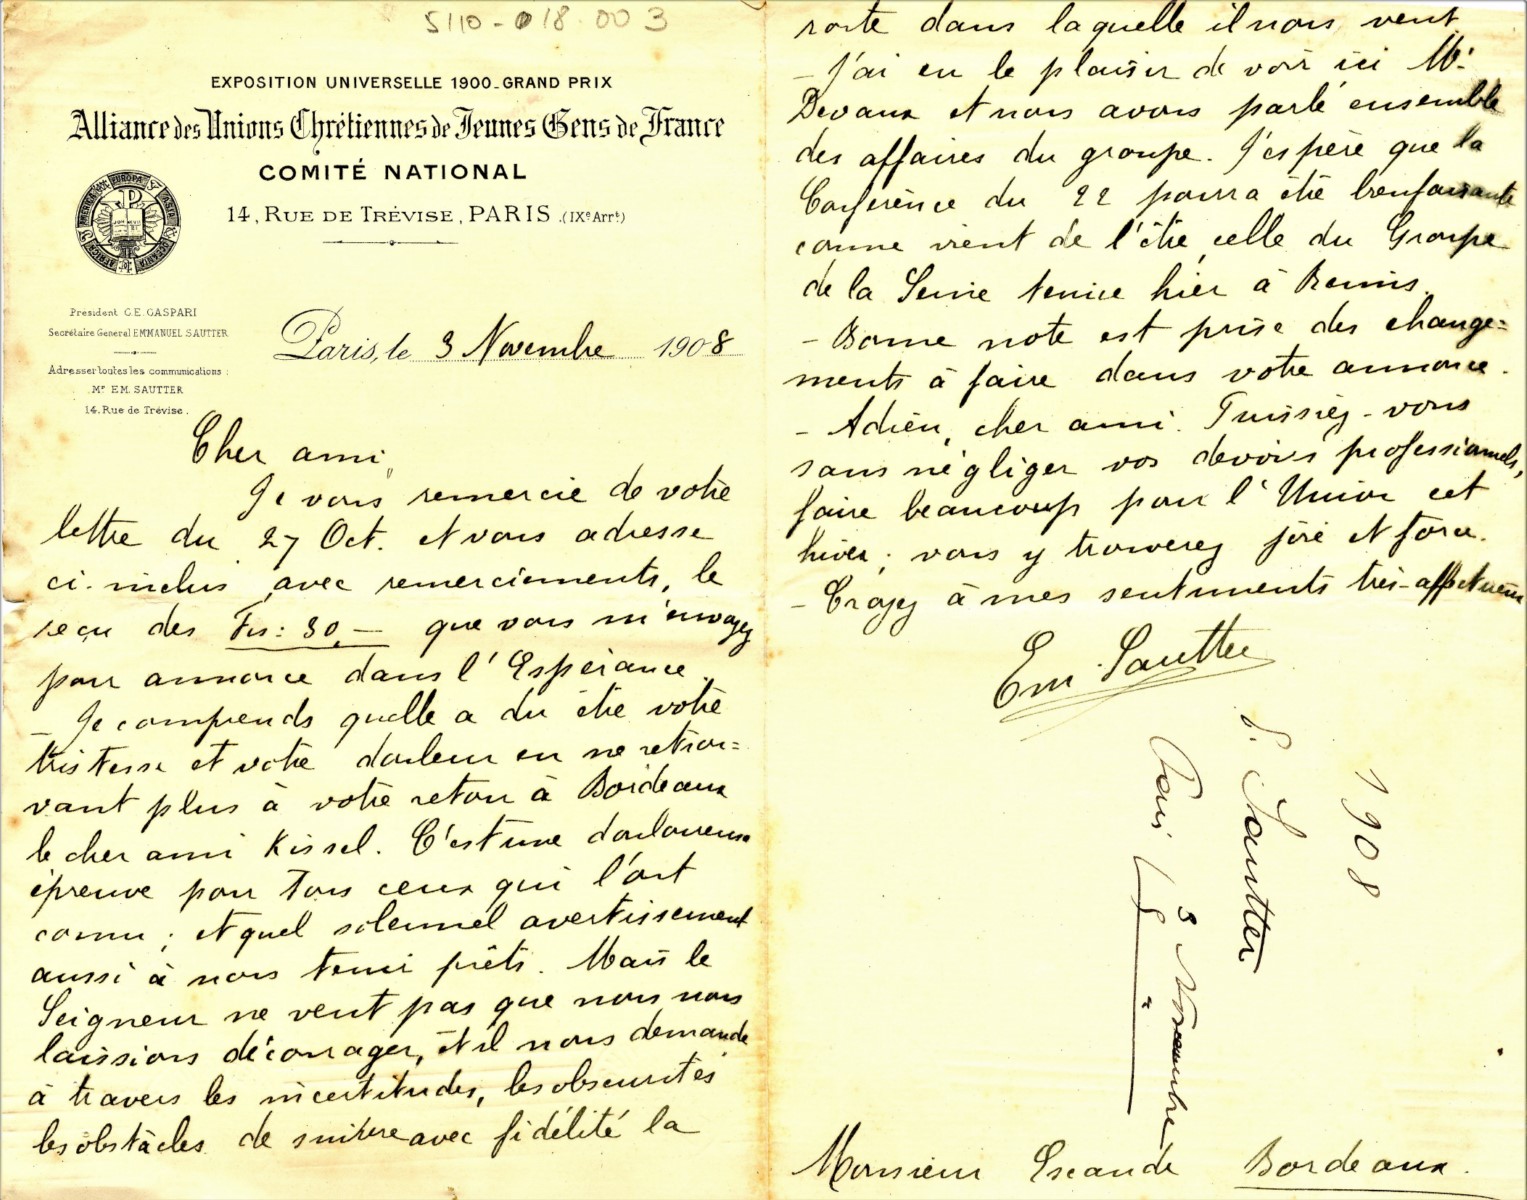 5110-018.00 3
EXPOSITION UNIVERSELLE 1900-GRAND PRIX
Alliance des Unions Chrétiennes de Jeunes Gens de France
COMITÉ NATIONAL
14, RUE DE TRÉVISE, PARIS .(IXe Arrt.)
President C.E. GASPARI
Secrétaire General EMMANUEL SAUTTER
Adresser toutes les communications :
Mr EM. SAUTTER
14, Rue de Trévise.
Paris, le 3 Novembre 1908
Cher ami,
Je vous remercie de votre
lettre du 27 Oct. et vous adresse
ci-inclus, avec remerciements, le
reçu des Frs: 30,— que vous m'envoyez
pour annonce dans l'Espérance.
— Je comprends quelle a dû être votre
tristesse et votre douleur en ne retrou=
vant plus à votre retour à Bordeaux
le cher ami Kissel. C'est une douloureuse
épreuve pour tous ceux qui l'ont
connu ; et quel solennel avertissement
aussi à nous tenir prêts. Mais le
Seigneur ne veut pas que nous nous
laissions décourager, et il nous demande
à travers les incertitudes, les obscurités
les obstacles de suivre avec fidélité la
route dans laquelle il nous veut.
— J'ai eu le plaisir de voir ici Mr.
Devaux et nous avons parlé ensemble
des affaires du groupe. J'espère que la
Conférence du 22 pourra être bienfaisante
comme vient de l'être celle du Groupe
de la Seine tenue hier à Reims.
— Bonne note est prise des change=
ments à faire dans votre annonce.
— Adieu, cher ami. Puissiez-vous
sans négliger vos devoirs professionnels,
faire beaucoup pour l'Union cet
hiver ; vous y trouverez joie et force.
— Croyez à mes sentiments très-affectueux
Em. Sautter
1908
Sautter
Paris
3 Novembre
Monsieur Escande Bordeaux.